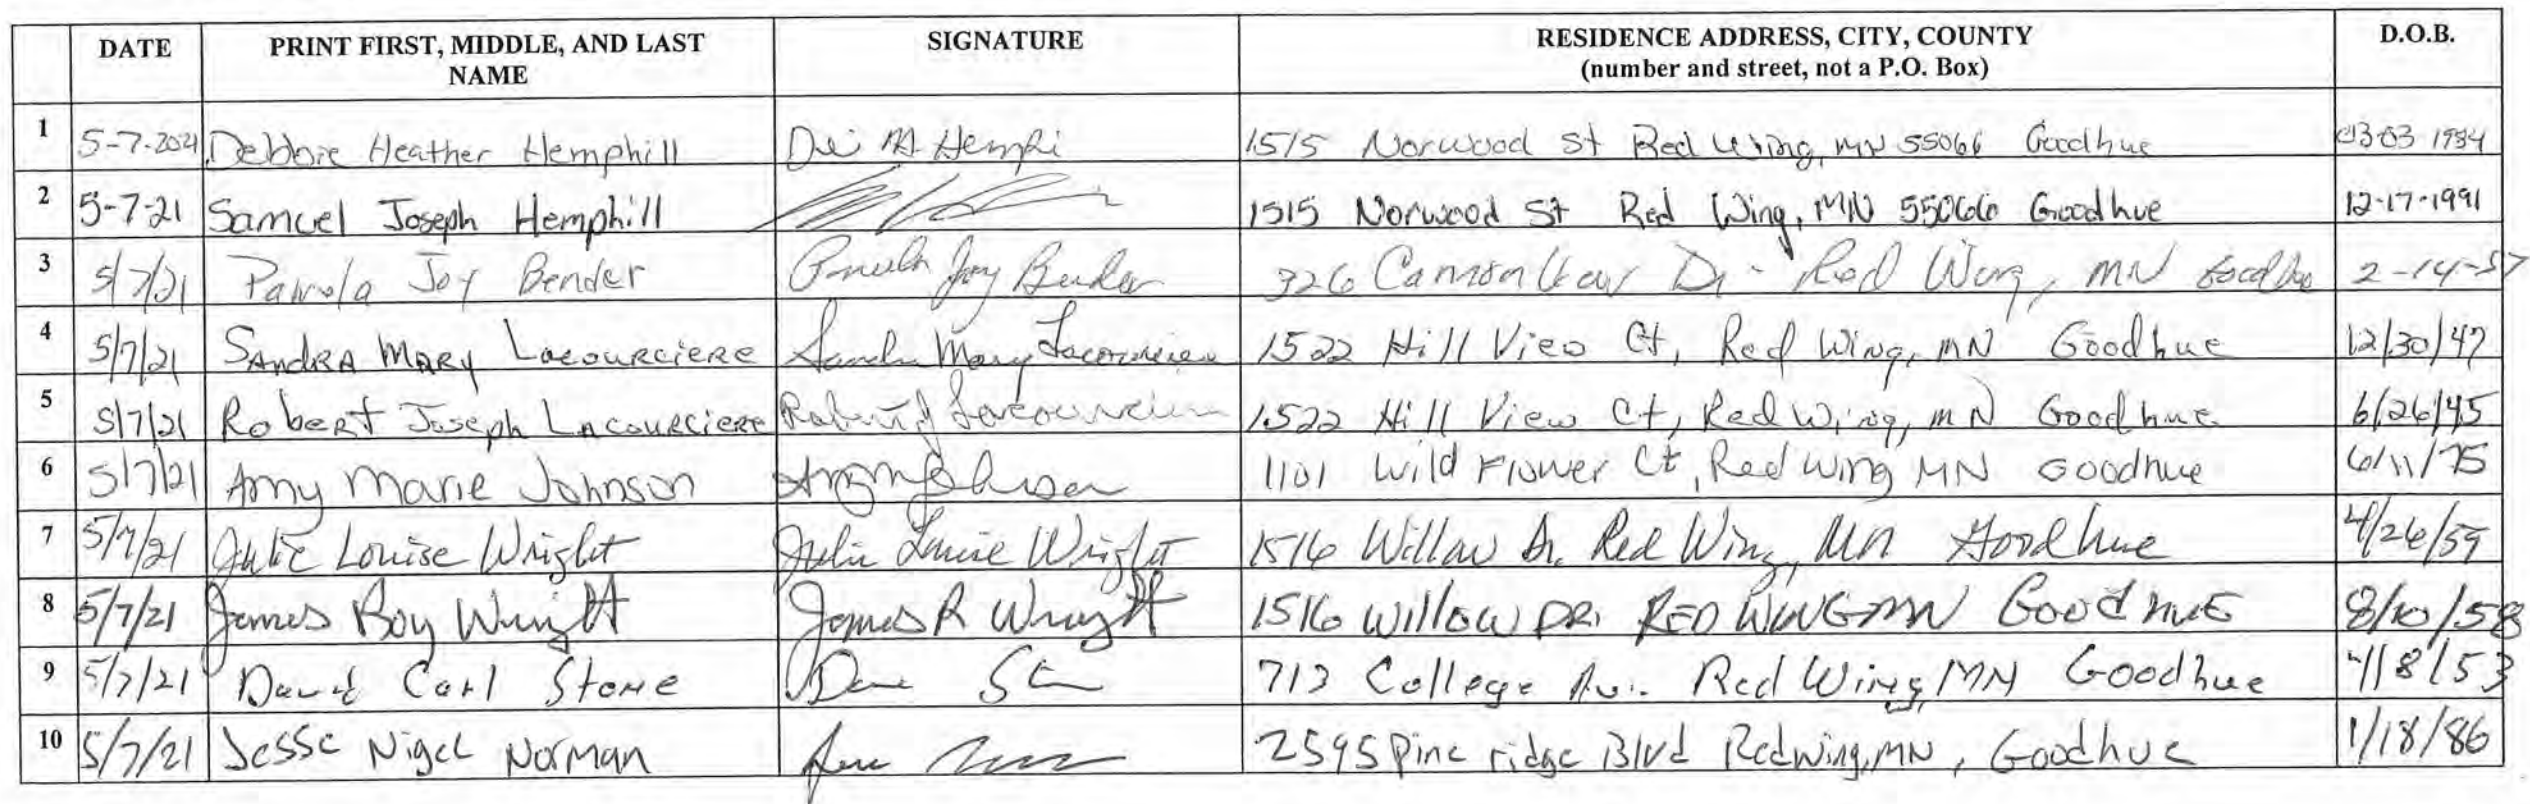 DATE PRINT FIRST, MIDDLE, AND LAST NAME SIGNATURE RESIDENCE ADDRESS, CITY, COUNTY (number and street, not a P.O. Box) D.O.B.
1 5-7-2021 Debbie Heather Hemphill 1515 Norwood St Red Wing, MN 55066 Goodhue 03-03 1984
2 5-7-21 Samuel Joseph Hemphill 1515 Norwood St Red Wing, MN 55066 Goodhue 12-17-1991
3 5/7/21 Pamela Joy Bender Pamela Joy Bender 326 Cannon View Dr - Red Wing, MN Goodhue 2-14-57
4 5/7/21 SANDRA MARY LACOURCIERE Sandra Mary Lacourciere 1522 Hill View Ct, Red Wing, MN Goodhue 12/30/47
5 5/7/21 Robert Joseph LACOURCIERE Robert J Lacourciere 1522 Hill View Ct, Red Wing, MN Goodhue 6/26/45
6 5/7/21 Amy Marie Johnson 1101 Wild Flower Ct, Red Wing MN Goodhue 6/11/75
7 5/7/21 Julie Louise Wright Julie Louise Wright 1516 Willow Dr. Red Wing, MN Goodhue 4/26/59
8 5/7/21 James Roy Wright James R Wright 1516 WILLOW DR. RED WING MN GoodhuE 8/10/58
9 5/7/21 David Carl Stone 713 College Av. Red Wing, MN Goodhue 4/18/53
10 5/7/21 Jesse Nigel Norman 2595 Pine ridge Blvd Redwing, MN, Goodhue 1/18/86